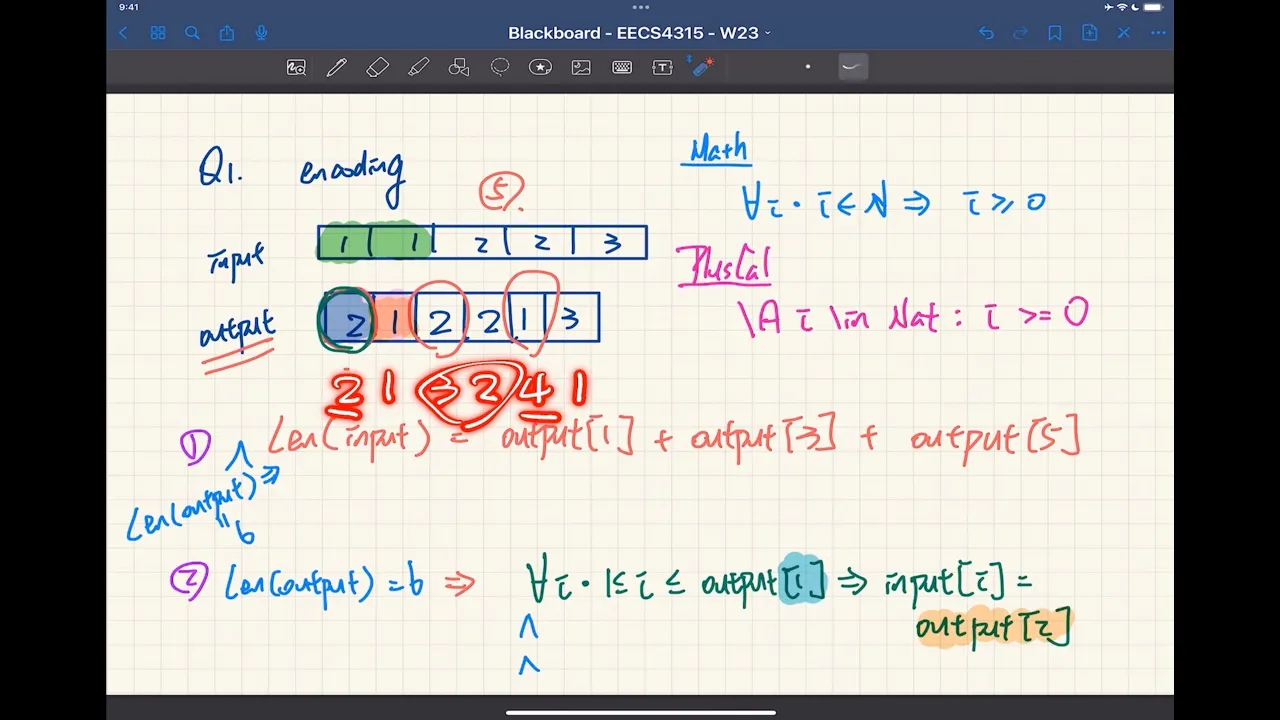 9:41
Blackboard - EECS4315 - W23
Q1. encoding
Math
5
∀i • i ∈ N ⇒ i ≥ 0
input 1 1 2 2 3
PlusCal
output 2 1 2 2 1 3
\A i \in Nat : i >= 0
2 1 3 2 4 1
① Len(input) = output[1] + output[3] + output[5]
∧
Len(output) ⇒
= 6
② Len(output) = 6 ⇒ ∀i • 1 ≤ i ≤ output[1] ⇒ input[i] =
output[2]
∧
∧